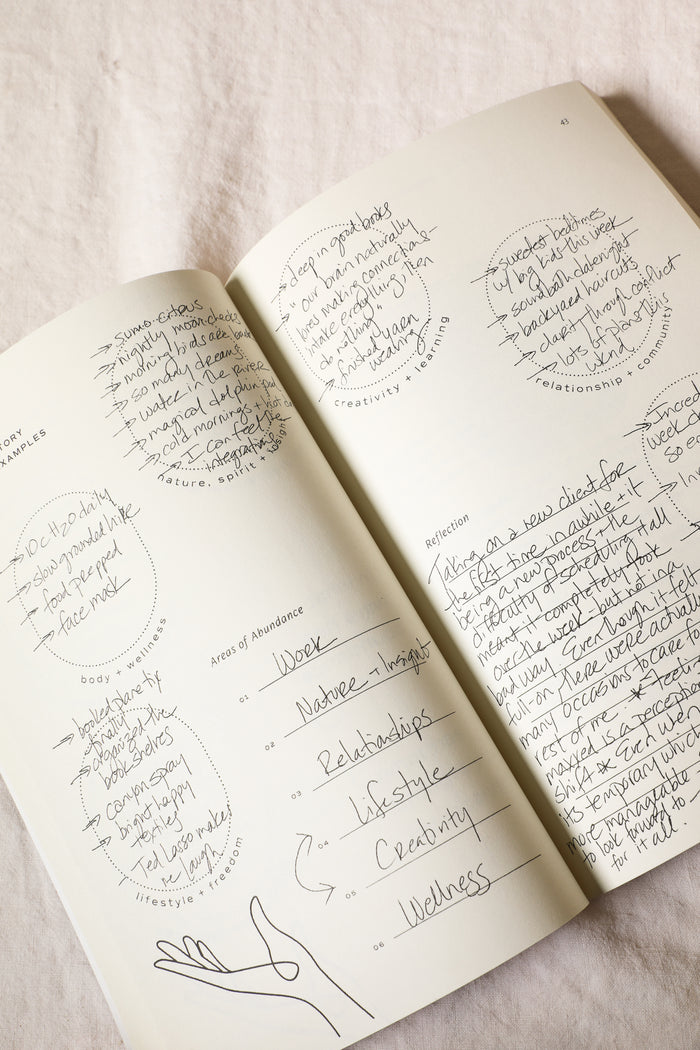 TORY
XAMPLES
Sumo citrus
nightly moon checks
morning birds are back
so many dreams
water in the river
magical dolphin
cold mornings + hot
I can feel the
integration
nature, spirit + insight
10c H2O daily
slow grounded hike
food prepped
face mask
body + wellness
booked plane tix
finally
organized the
bookshelves
canyon spray
bright happy
textiles
Ted Lasso makes
me laugh
lifestyle + freedom
Areas of Abundance
01 Work
02 Nature + Insight
03 Relationships
04 Lifestyle
05 Creativity
06 Wellness
43
deep in good books
"our brain naturally
loves making connections-
intake everything, then
do nothing"
finished yarn
weaving
creativity + learning
sweetest bedtimes
w/ big kids this week
sound bath date night
backyard haircuts
clarity through conflict
lots of plans this
wknd
relationship + community
Incred
week
so e
In
Reflection
Taking on a new client for
the first time in awhile + it
being a new process + the
difficulty of scheduling it all
meant it completely took
over the week - but not in a
bad way. Even though it felt
full-on, there were actually
many occasions to care fo
rest of me. * Feelin
maxxed is a perception
shift * Even when
its temporary which
more manageable -
to look forward to
for it all.